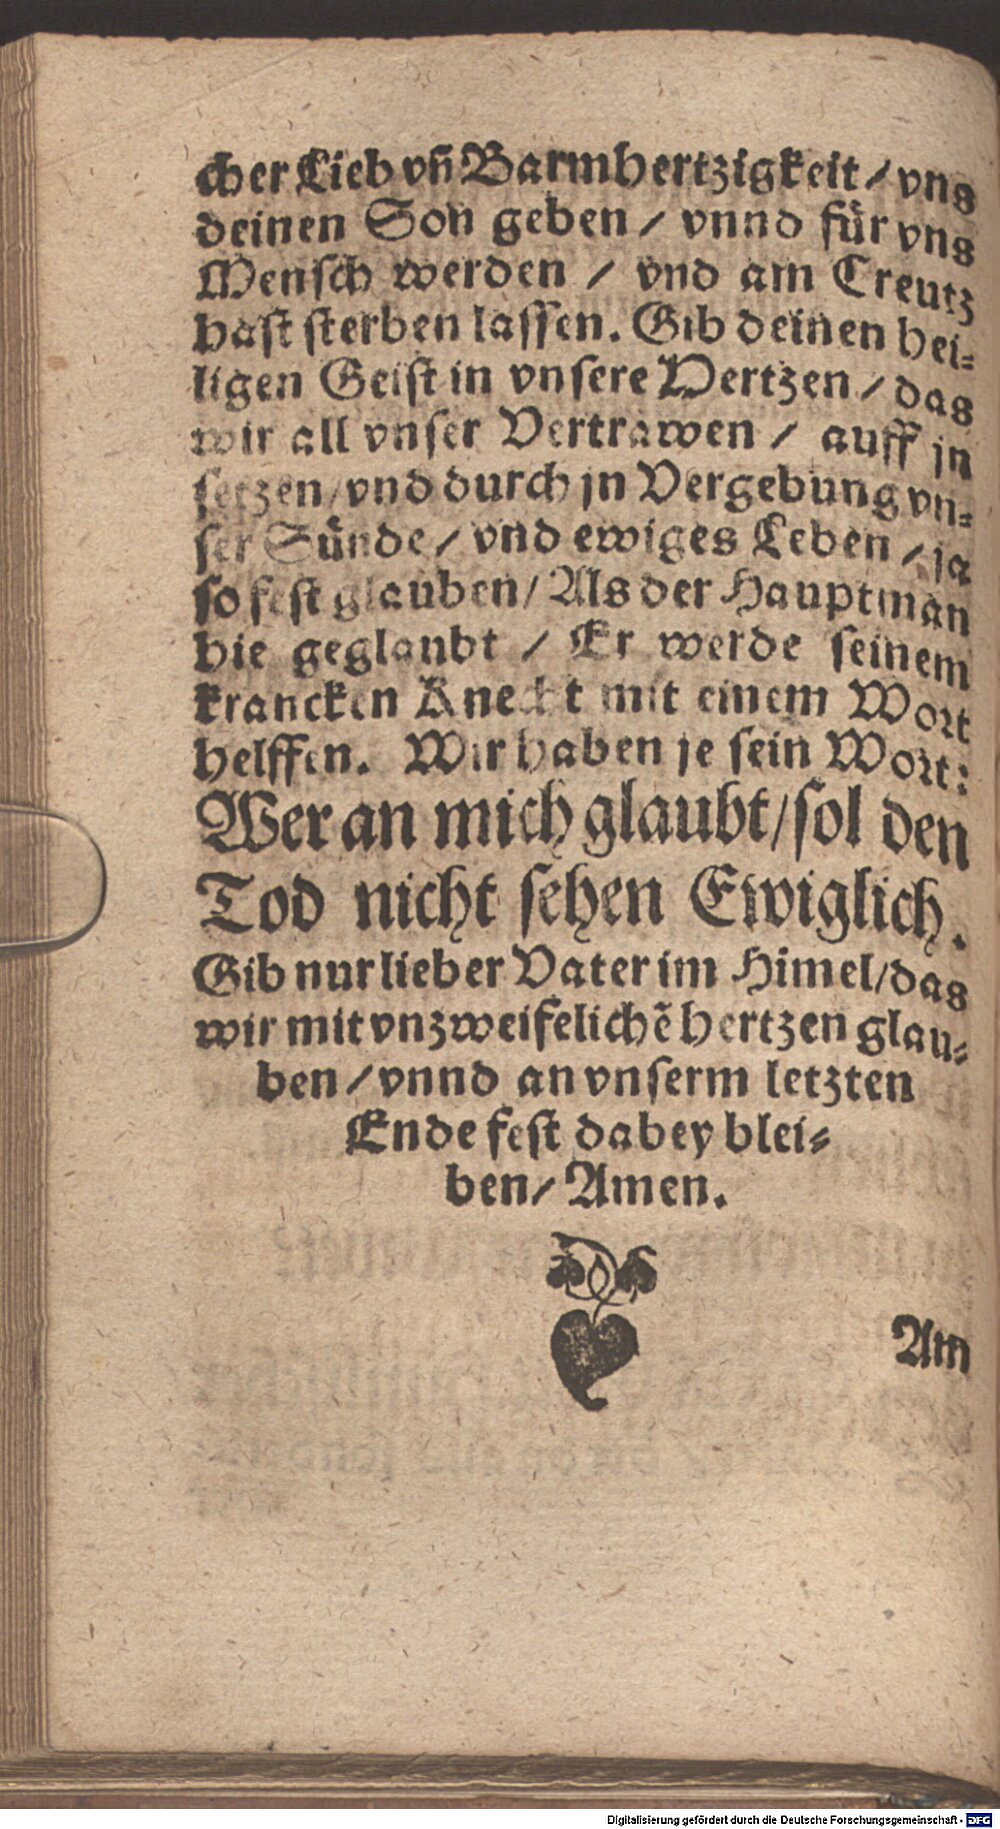 cher Lieb vñ Barmhertzigkeit / vns
deinen Son geben / vnnd fuͤr vns
Mensch werden / vnd am Creutz
hast sterben lassen. Gib deinen hei-
ligen Geist in vnsere Hertzen / das
wir all vnser Vertrawen / auff jn
setzen / vnd durch jn Vergebung vn-
ser Suͤnde / vnd ewiges Leben / ja
so fest glauben / Als der Hauptman
hie geglaubt / Er werde seinem
krancken Knecht mit einem Wort
helffen. Wir haben je sein Wort:
Wer an mich glaubt / sol den
Tod nicht sehen Ewiglich.
Gib nur lieber Vater im Himel / das
wir mit vnzweifelichẽ hertzen glau-
ben / vnnd an vnserm letzten
Ende fest dabey blei-
ben / Amen.
Am
Digitalisierung gefördert durch die Deutsche Forschungsgemeinschaft - DFG